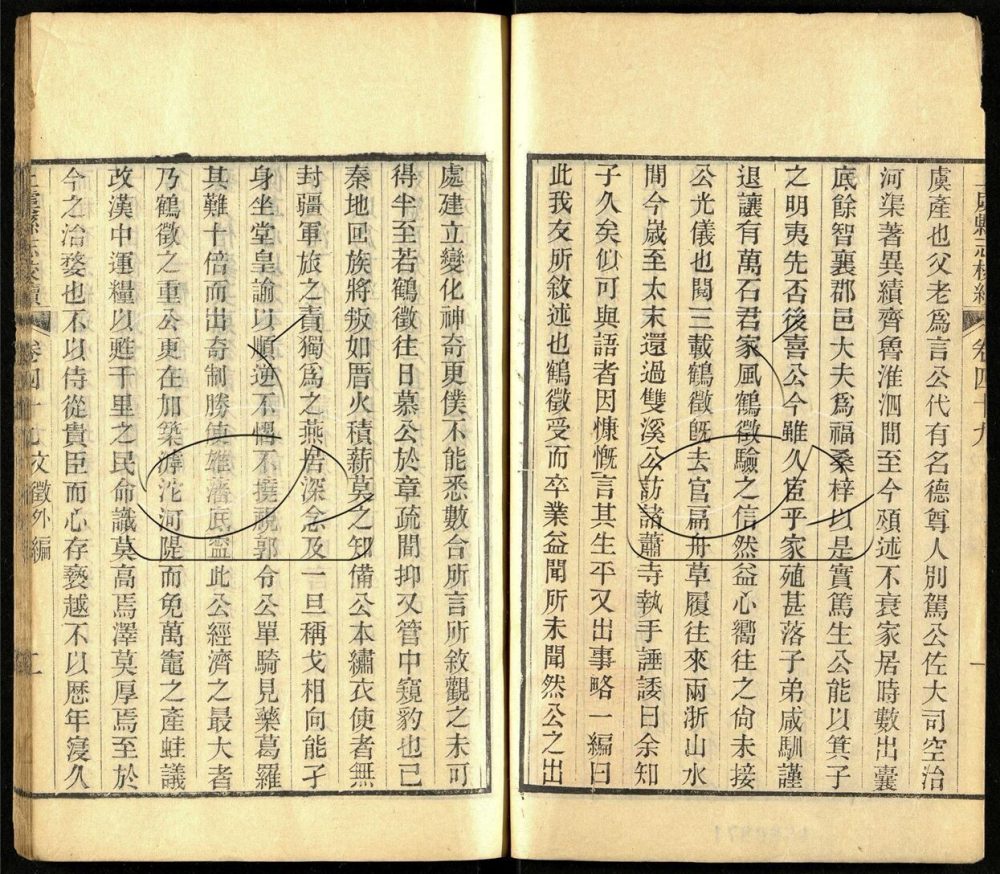 虞縣志校續 卷四十九
虞產也父老爲言公代有名德尊人別駕公佐大司空治
河渠著異績齊魯淮泗間至今頌述不衰家居時數出囊
底餘智裏郡邑大夫爲福桑梓以是實篤生公能以箕子
之明夷先否後喜公今雖久宦乎家殖甚落子弟咸馴謹
退讓有萬石君家風鶴徵驗之信然益心嚮往之尙未接
公光儀也閱三載鶴徵旣去官扁舟草履往來兩浙山水
間今歲至太末還過雙溪公訪諸蕭寺執手諈諉曰余知
子久矣似可與語者因慷慨言其生平又出事略一編曰
此我友所敘述也鶴徵受而卒業益聞所未聞然公之出
處建立變化神奇更僕不能悉數台所言所敘觀之未可
得半至若鶴徵往日慕公於章疏間抑又管中窺豹也已
秦地回族將叛如厝火積薪莫之知備公本繡衣使者無
封疆軍旅之責獨爲之燕居深念及一旦稱戈相向能孑
身坐堂皇諭以順逆不慴不撓視郭令公單騎見藥葛羅
其難十倍而出奇制勝使雄藩底盜此公經濟之最大者
乃鶴徵之重公更在加築滹沱河隄而免萬竈之產蛙議
改漢中運糧以甦千里之民命識莫高焉澤莫厚焉至於
今之治婺也不以侍從貴臣而心存褻越不以歷年寖久
上虞縣志校續 卷四十九 文徵外編 二